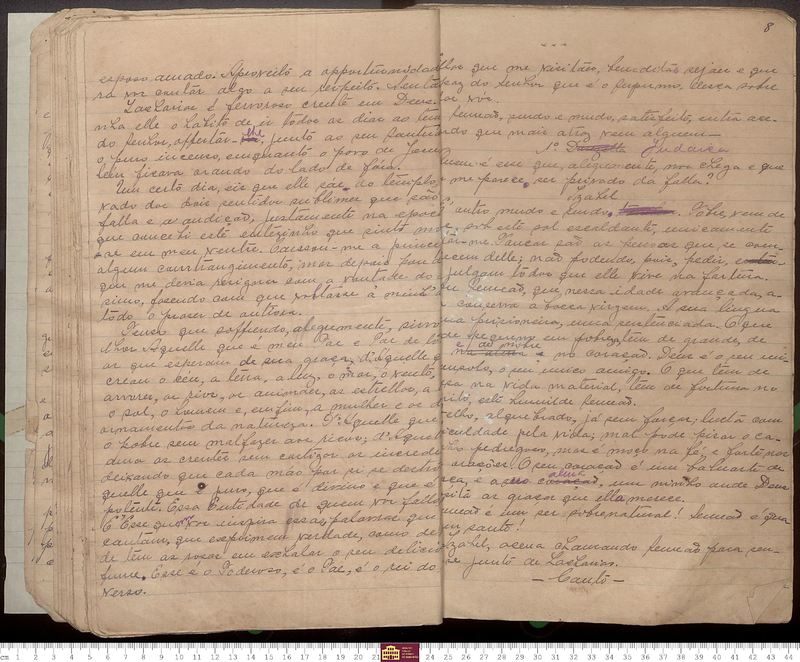 esposo amado. Aproveito a opportunidade
ra vos contar algo a seu respeito.
Zacharias é fervoroso crente em Deus.
nha elle o habito de, ir todos os dias ao tem
do Senhor, offertar-lhe, junto ao seu Santuario
o puro incenso, emquanto o povo de Jeru
lem ficava orando do lado de fóra.
Um certo dia, eis que elle sáe do templo
vado dos dois sentidos sublimes que são
falla e a audição, justamente na epoca
que concebi este entezinho que sinto mo
ver em meu ventre. Causou-me a principio
algum constrangimento, mas depois
que me devia resignar com a vontade do
simo, fazendo com que voltasse á minh
todo o prazer de outrora.
Penso que soffrendo, alegremente, sirvo
lhor Aquelle que é meu Pae e Pae de to
os que esperam de sua graça; d'Aquelle q
creou o céu, a terra, a luz, o mar, o vento,
arvores, os rios, os animaes, as estrellas, a
o sol, o homem e, emfim, a mulher e os
ornamentos da natureza. D'Aquelle que
o pobre sem malfazer aos ricos; d'Aquel
dôa os crentes sem castigar os incredu
deixando que cada mão por si se
quelle que é puro, que é divino e que é
potente. Essa Entidade de quem vos fallo
É Esse que vos inspira essas palavras que
cantam, que exprimem verdade, como de
de têm as rosas em exhalar o seu delicio
fume. Esse é o Poderoso, é o Pae, é o rei do
verso.
8
que me visitães, bemditas sejam e que
paz do Senhor que é o Supremo, desça sobre
vós.
Simeão, surdo e mudo, satisfeito, entra ace-
ndo que mais atraz vem alguem—
1º Judaica
uem é esse que, alegremente, nos chega e que
me parece, ser privado da falla?
Izabel
outro mudo e surdo. Pobre, vem de
sob este sol escaldante, unicamente
-me. Poucas são as pessoas que se com
cem delle; não podendo, pois, pedir,
julgam todos que elle vive na fartura.
Simeão, que nessa idade avançada, a-
conserva a bocca virgem. A sua lingua
ma prisioneira, uma sentenciada. O que
de pequeno em pobre, tem de grande, de
e de nobre
no coração. Deus é o seu uni
nsolo, o seu unico amigo. O que tem de
sa na vida material, tem de fortuna no
rito, este humilde Simeão.
elho, alquebrado, já sem forças; lucta com
culdade pela vida; mal póde pisar o ca-
ho pedregoso, mas é moço na fé, e forte nas
orações. O seu coração é um baluarte de
ça, e a sua alma um ninho onde Deus
sita as graças que ella merece.
imeão é um ser sobrenatural! Simeão é quasi
um santo!
Izabel, acena chamando Simeão para sen-
se junto de Zacharias.
— Canto —